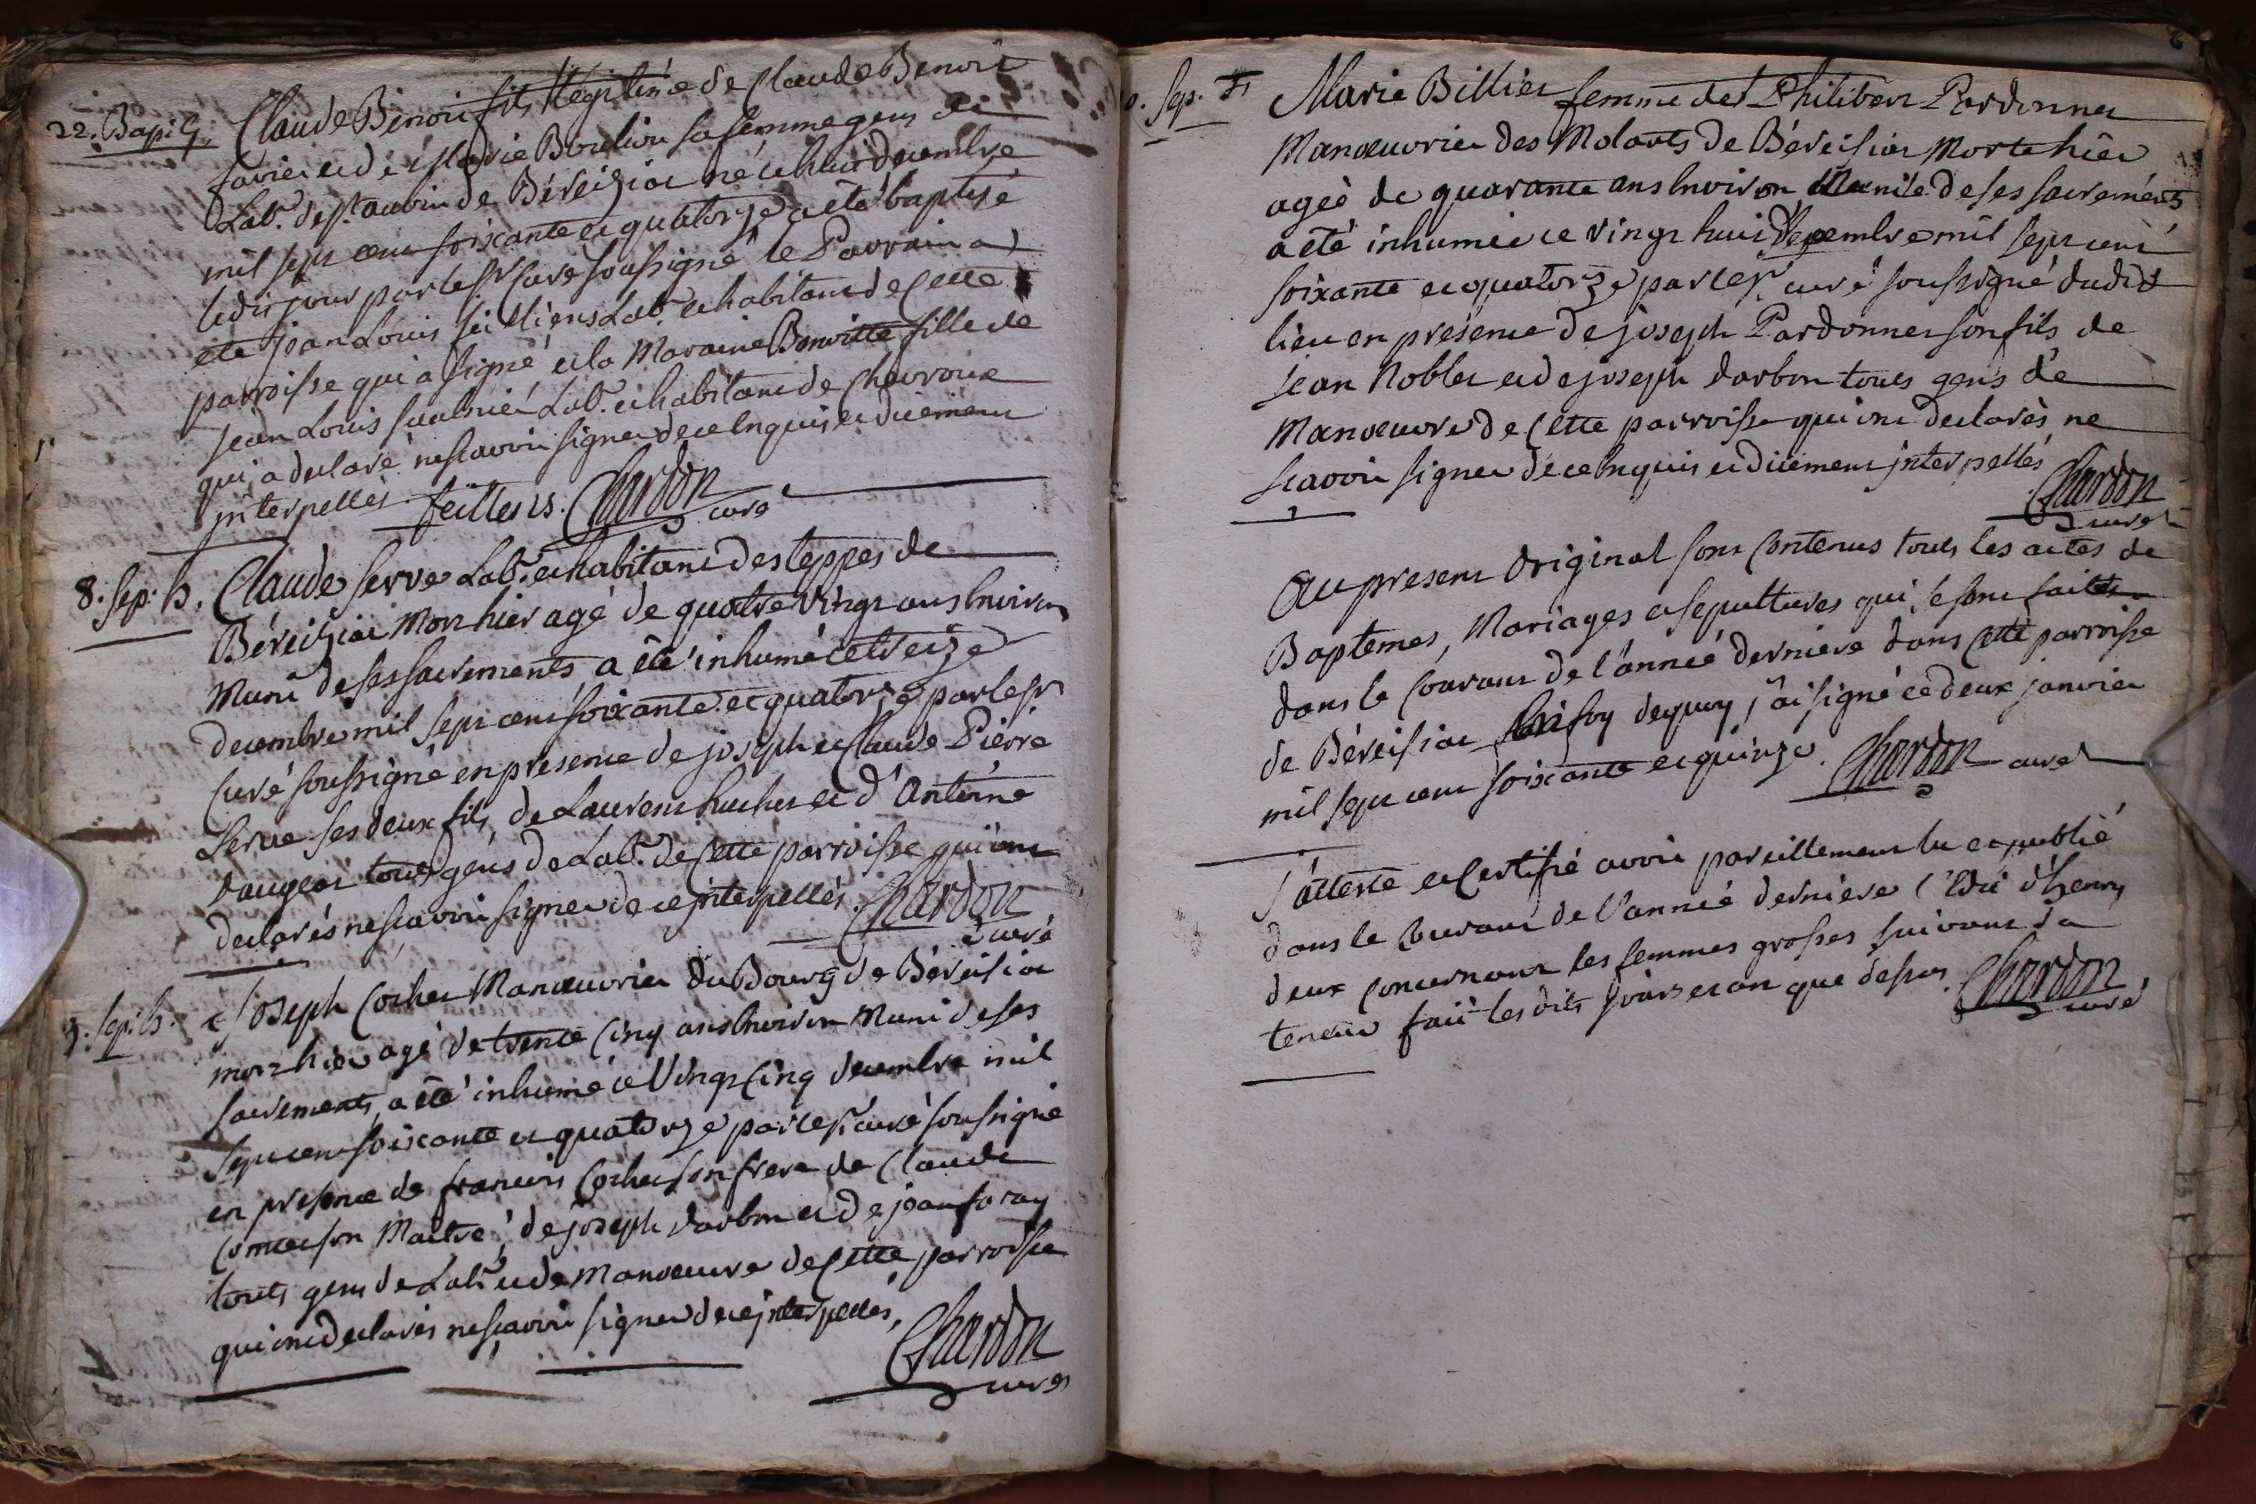 22. Bap. G. Claude Benoit fils légitime de Claude Benoit
favier et de Marie Boulion sa femme gens de
Lab.r de St. aubin de Béreiziat né ce huit decembre
mil sept cent soixante et quatorze a été baptisé
ledit jour par le Sr Curé soussigné le Parrain a
été jean Louis feilliens Lab.r et habitant de cette
parroisse qui a signé et la Maraine Benoitte fille de
jean Louis Lab.r et habitant de Chevroux
qui a declaré ne sçavoir signer de ce Enquis et duement
interpellés feilliens. Chardon
curé
8. Sep. h. Claude Serve Lab.r et habitant des teppes de
Béreiziat Mort hier agé de quatre vingt ans Environ
Muni de ses sacrements, a été inhumé ce treize
decembre mil sept cent soixante et quatorze par le Sr
Curé soussigné en presence de joseph et Claude Pierre
Serve ses deux fils, de Laurent huchet et d'Antoine
daugeat touts gens de Lab.r de Cette parroisse qui ont
declarés ne sçavoir signer de ce interpellés. Chardon
curé
9. Sep. h. Joseph Cochet Manœuvrier du Bourg de Béreisiat
mort hier agé de trente Cinq ans Environ Muni de ses
sacrements, a été inhumé ce Vingt Cinq decembre mil
sept cent soixante et quatorze par le Sr curé soussigné
en presence de francois Cochet son frere de Claude
son Maitre, de joseph darbon et de jean foray
touts gens de Lab.r et de Manœuvre de Cette parroisse
qui ont declarés ne sçavoir signer de ce interpellés,
Chardon
curé
Sep. f. Marie Billier femme de Philibert Pardonner
Manœuvrier des Molards de Béreisiat Morte hier
ageé de quarante ans Environ Munie de ses sacrements
a été inhumée ce Vingt huit decembre mil sept cent
soixante et quatorze par le Sr curé soussigné dudit
lieu en présence de joseph Pardonner son fils de
jean Noblet et de joseph darbon touts gens de
Manœuvre de Cette parroisse qui ont declarés ne
sçavoir signer de ce Enquis et duement interpellés
Chardon
curé
Au present Original sont Contenus touts les actes de
Baptemes, Mariages et sepultures qui se sont faits
dans le Courant de l'année derniere dans Cette parroisse
de Béreisiat En foy dequoy j'ai signé ce deux janvier
mil sept cent soixante et quinze. Chardon curé
J'atteste et Certifie avoir pareillement lu et publié
dans le Courant de l'année derniere l'Edit d'henry
deux Concernant les femmes grosses suivant sa
teneur fait les dits jours et an que dessus. Chardon
curé